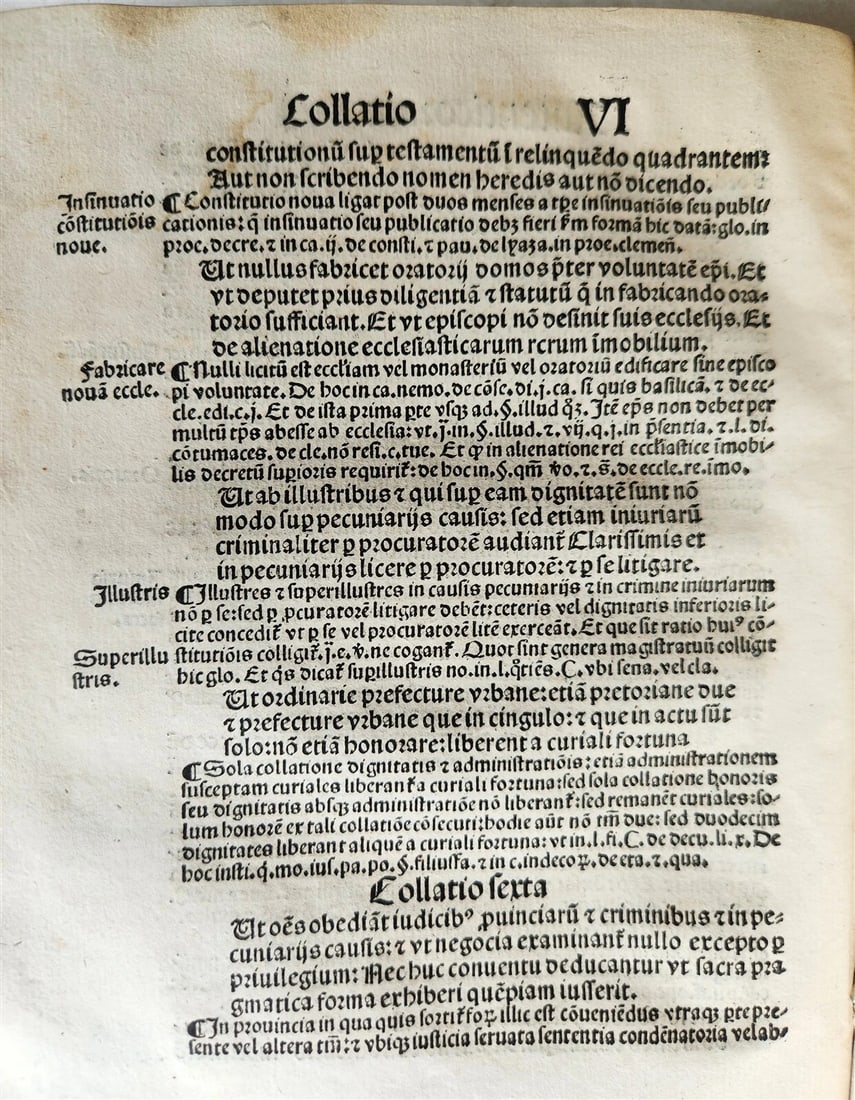 Collatio VI
constitutionū suꝑ testamentū ⁊ relinquēdo quadrantem:
Aut non scribendo nomen heredis aut nō dicendo.
Insinuatio ¶ Constitutio noua ligat post duos menses a tꝑe insinuatiōis seu publi/
cōstitutiōis cationis: q̄ insinuatio seu publicatio debꝫ fieri ẜm formā hic datā: glo. in
noue. proc. decre. ⁊ in ca. ij. de consti. ⁊ pau. de lyaza. in proe. clemeñ.
Ut nullus fabricet oratorij domos p̄ter voluntatē ep̄i. Et
vt deputet prius diligentiā ⁊ statutū q̄ in fabricando ora⸗
torio sufficiant. Et vt episcopi nō desinit suis ecclesijs. Et
de alienatione ecclesiasticarum rerum īmobilium.
Fabricare ¶ Nulli licitū est eccl'iam vel monasteriū vel oratoriū edificare sine episco
nouā eccle. pi voluntate. De hoc in ca. nemo. de cōse. di. j. ca. si quis basilicā. ⁊ de ec⸗
cle. edi. c. j. Et de ista prima ꝑte vsqꝫ ad. §. illud qꝫ. Itē ep̄s non debet per
multū tp̄s abesse ab ecclesia: vt. j. in. §. illud. ⁊. vij. q. j. in p̄sentia. ⁊. l. di.
cōtumaces. de cle. nō resi. c. tue. Et ꝙ in alienatione rei eccl'iastice īmobi/
lis decretū suꝑioris requirit̄: de hoc in. §. qm̄ ꝟo. ⁊. s̄. de eccle. re. īmo.
Ut ab illustribus ⁊ qui suꝑ eam dignitatē sunt nō
modo suꝑ pecuniarijs causis: sed etiam iniuriarū
criminaliter ꝑ procuratorē audiant̄ Clarissimis et
in pecuniarijs licere ꝑ procuratorē: ⁊ ꝑ se litigare.
Illustris ¶ Illustres ⁊ superillustres in causis pecuniarijs ⁊ in crimine iniuriarum
nō ꝑ se: sed ꝑ ꝓcuratorē litigare debēt: ceteris vel dignitatis inferioris li⸗
cite concedit̄ vt ꝑ se vel procuratorē litē exerceāt. Et que sit ratio huiꝰ cō⸗
Superillu stitutiōis colligit̄. j. e. ꝟ. ne cogant̄. Quot sint genera magistratuū colligit
stris. hic glo. Et q̄s dicat̄ suꝑillustris no. in. l. q̄tiēs. C. vbi sena. vel cla.
Ut ordinarie prefecture vrbane: etiā pretoriane due
⁊ prefecture vrbane que in cingulo: ⁊ que in actu sūt
solo: nō etiā honorare: liberent a curiali fortuna
¶ Sola collatione dignitatis ⁊ administratiōis: etiā administrationem
susceptam curiales liberant̄ a curiali fortuna: sed sola collatione honoris
seu dignitatis absqꝫ administratiōe nō liberant̄: sed remanēt curiales: so⸗
lum honorē ex tali collatiōe cōsecuti: hodie aūt nō tm̄ due: sed duodecim
dignitates liberant aliquē a curiali fortuna: vt in. l. fi. C. de decu. li. x. De
hoc insti. q. mo. ius. pa. po. §. filiusfa. ⁊ in c. indecoꝝ. de eta. ⁊. qua.
Collatio sexta
Ut oēs obediāt iudicibꝰ ꝓuinciarū ⁊ criminibus ⁊ in pe⸗
cuniarijs causis: ⁊ vt negocia examinant̄ nullo excepto ꝑ
priuilegium: Nec huc conuentu deducantur vt sacra pra
gmatica forma exhiberi quēpiam iusserit.
¶ In prouincia in qua quis sortit̄ foꝝ illic est cōueniēdus vtraqꝫ ꝑte pre⸗
sente vel altera tm̄: ⁊ vbiqꝫ iusticia seruata sententia condēnatoria vel ab⸗